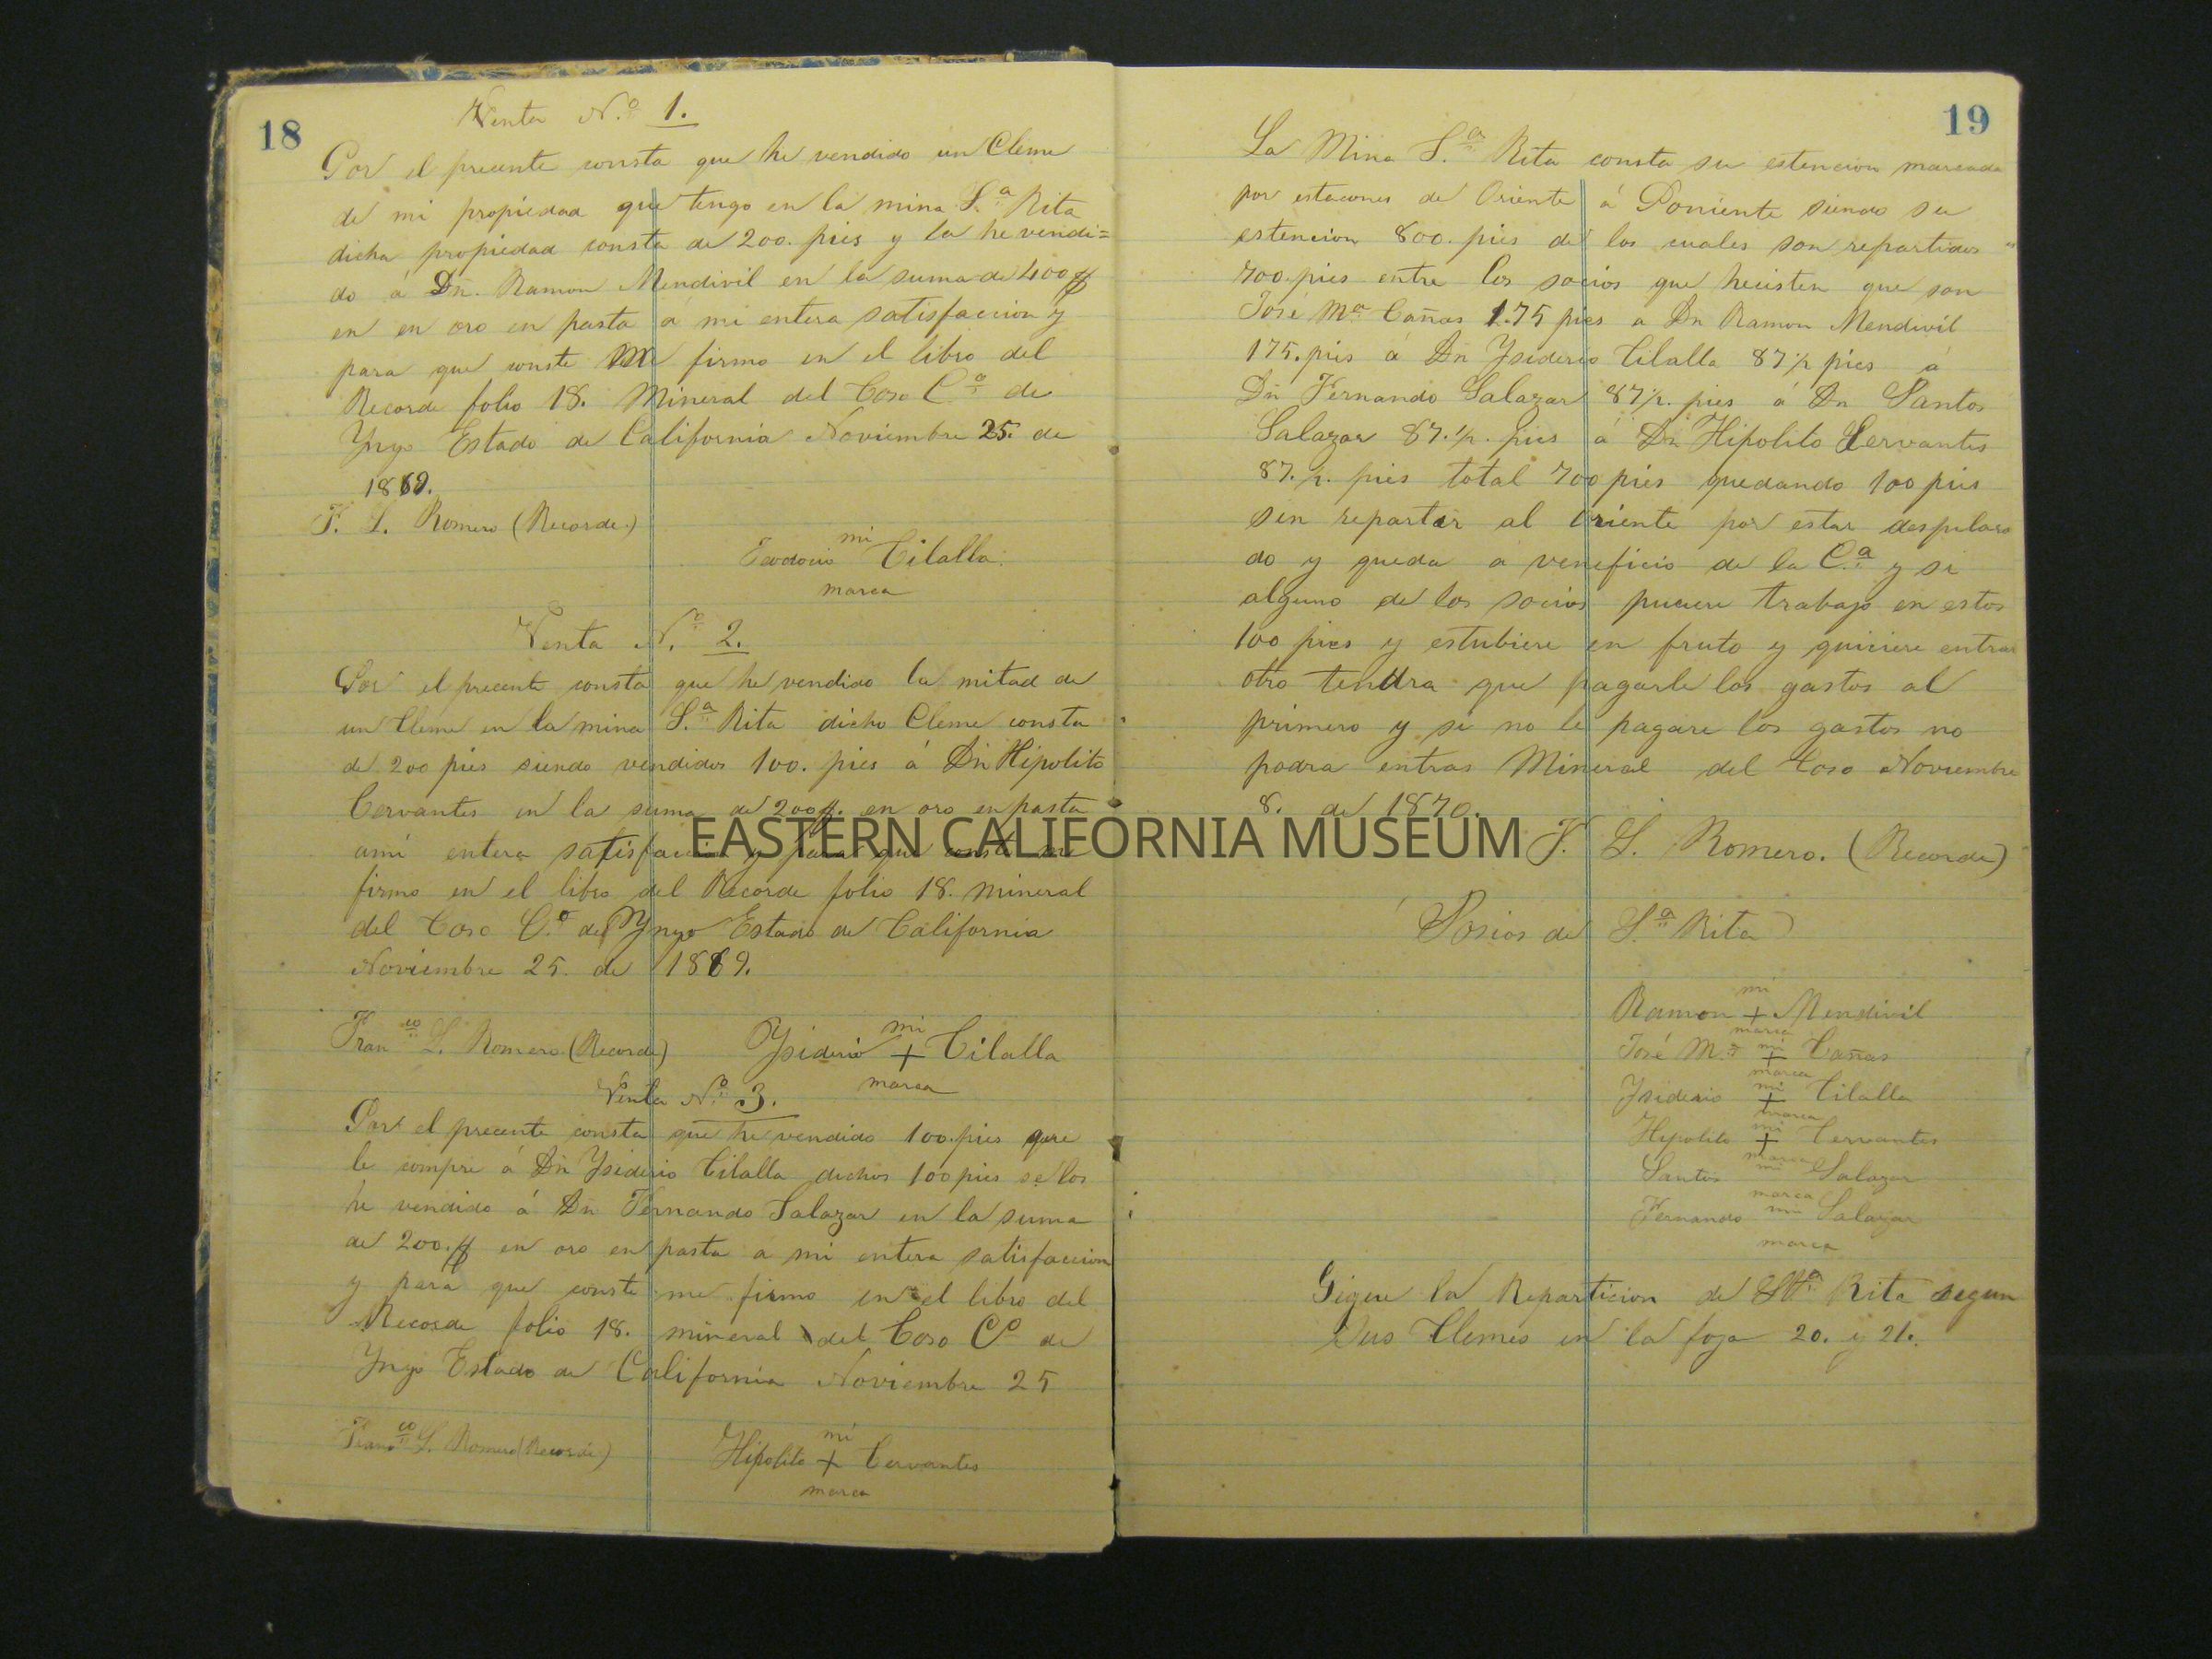 18
Venta N.º 1.
Por el precente consta que he vendido un Cleme
de mi propiedad que tengo en la mina S.ª Rita
dicha propiedad consta de 200. pies y la he vendi=
do á Dn. Ramon Mendivil en la suma de 400 $
en en oro en pasta á mi entera satisfaccion y
para que conste me firmo en el libro del
Recorde folio 18. Mineral del Coso C.º de
Ynyo Estado de California Noviembre 25. de
1869.
F. L. Romero (Recorde.)
mi
Cilalla.
marca
Venta N.º 2.
Por el precente consta que he vendido la mitad de
un Cleme en la mina S.ª Rita dicho Cleme consta
de 200 pies siendo vendidos 100. pies á Dn Hipolito
Cervantes en la suma de 200 $. en oro en pasta
ami entera satisfaccion y para que conste me
firmo en el libro del Recorde folio 18. mineral
del Coso C.º de Ynyo Estado de California
Noviembre 25. de 1869.
Fran.co L. Romero (Recorde)
mi
Ysiderio + Cilalla
marca
Venta N.º 3.
Por el precente consta que he vendido 100. pies que
le compre á Dn Ysiderio Cilalla dichos 100 pies se los
he vendido á Dn Fernando Salazar en la suma
de 200. $ en oro en pasta a mi entera satisfaccion
y para que conste me firmo en el libro del
Recorde folio 18. mineral del Coso C.º de
Ynyo Estado de California Noviembre 25
Franco L. Romero (Recorde)
mi
Hipolito + Cervantes
marca
19
La Mina S.ª Rita consta su estencion marcada
por estacones de Oriente á Poniente siendo su
estencion 800. pies de los cuales son repartidos
700. pies entre los socios que hecisten que son
José Mª Cañas 175 pies a Dn Ramon Mendivil
175. pies á Dn Ysiderio Cilalla 87 1/2 pies á
Dn Fernando Salazar 87 1/2. pies á Dn Santos
Salazar 87. 1/2. pies á Dn Hipolito Cervantes
87. 1/2. pies total 700 pies quedando 100 pies
sen repartir al oriente por estar despilara
do y queda a veneficio de la C.ª y si
alguno de los socios puciere trabajo en estos
100 pies y estubiere en fruto y quiciere entrar
otro tendra que pagarle los gastos al
primero y si no le pagare los gastos no
podra entrar Mineral del Coso Noviembre
8. de 1870.
F. L. Romero. (Recorde)
Socios de S.ª Rita
mi
Ramon + Mendivil
marca
mi
José M.ª + Cañas
marca
mi
Ysiderio + Cilalla
marca
mi
Hipolito + Cervantes
marca
mi
Santos Salazar
marca
mi
Fernando Salazar
marca
Sigue la Reparticion de Sta Rita segun
Sus Clemes en la foja 20. y 21.
EASTERN CALIFORNIA MUSEUM